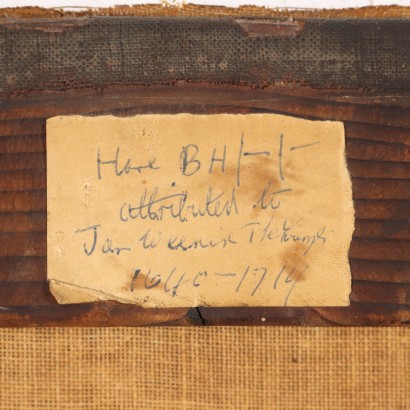 Hare BH/-/-
attributed to
Jan Weenix The Younger
1640-1719